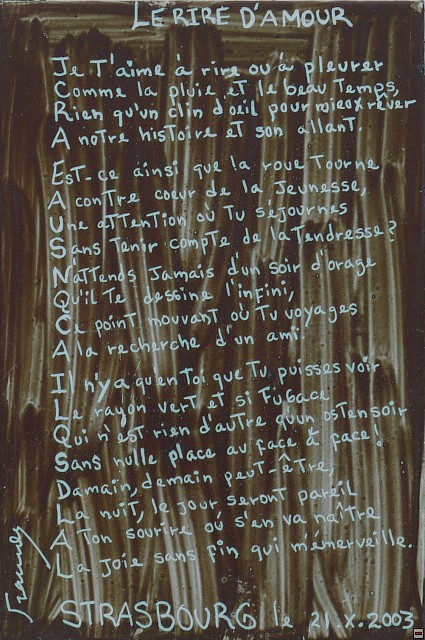 LE RIRE D'AMOUR
Je T'aime à rire ou à pleurer
Comme la pluie et le beau Temps,
Rien qu'un clin d'oeil pour mieux rêver
A notre histoire et son allant.
Est-ce ainsi que la roue Tourne
A contre coeur de la Jeunesse,
Une aTTenTion où Tu séjournes
Sans Tenir compte de la Tendresse?
N'attends Jamais d'un soir d'orage
Qu'il Te dessine l'infini,
Ce point mouvant où Tu voyages
A la recherche d'un ami.
Il n'y a qu'en Toi que Tu puisses voir
Le rayon vert et si Fugace
Qui n'est rien d'autre qu'un osTensoir
Sans nulle place au face à face!
Damain, demain peut-être,
La nuit, le jour seront pareil
A Ton sourire où s'en va naître
La Joie sans fin qui m'émerveille.
STRASBOURG le 21.X.2003